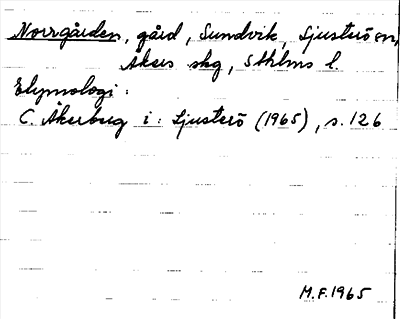 Norrgården, gård, Sundvik, Ljusterö sn,
Åkers skg, Sthlms l.
Etymologi:
C. Åkerberg i: Ljusterö (1965), s. 126
M.F. 1965